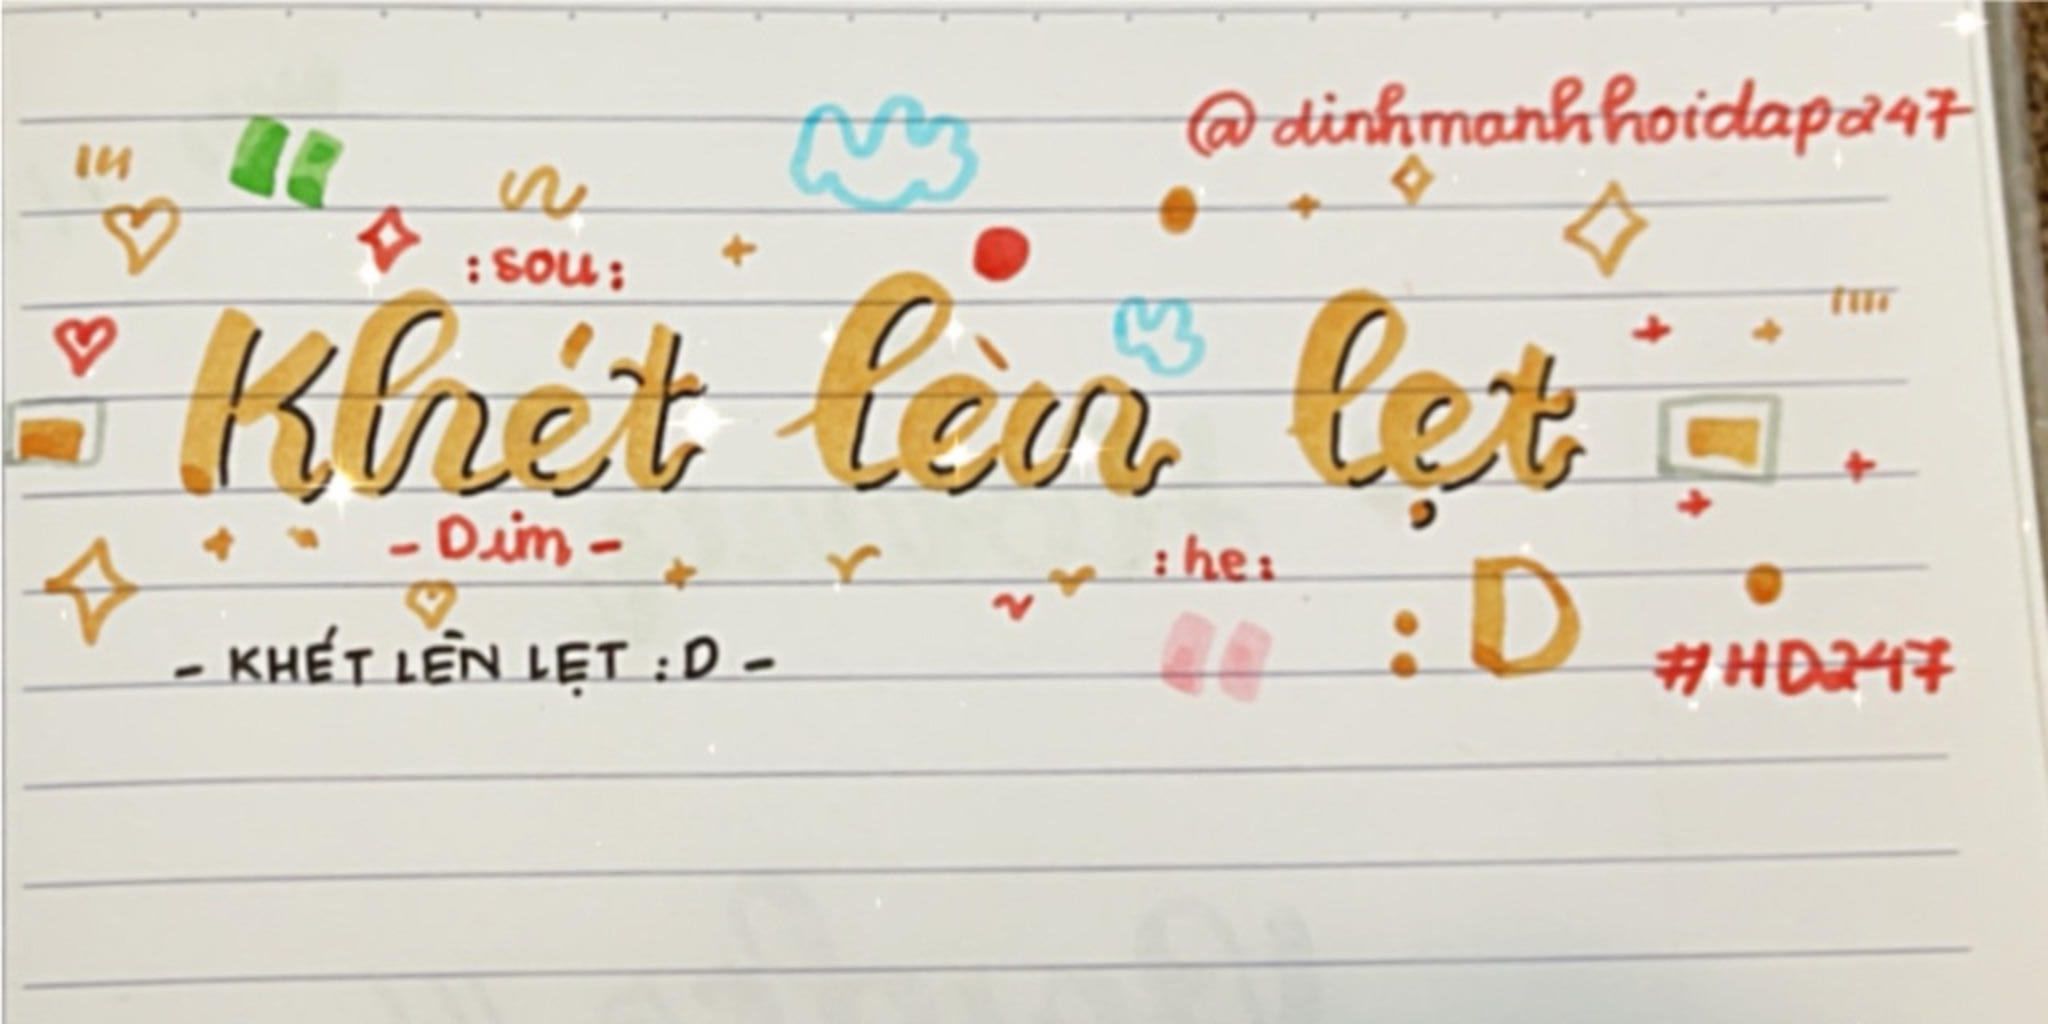 @dinhmanhhoidap247
:sou:
Khét lèn lẹt
- Dim -
:he:
:D
- KHÉT LÈN LẸT :D -
#HD247